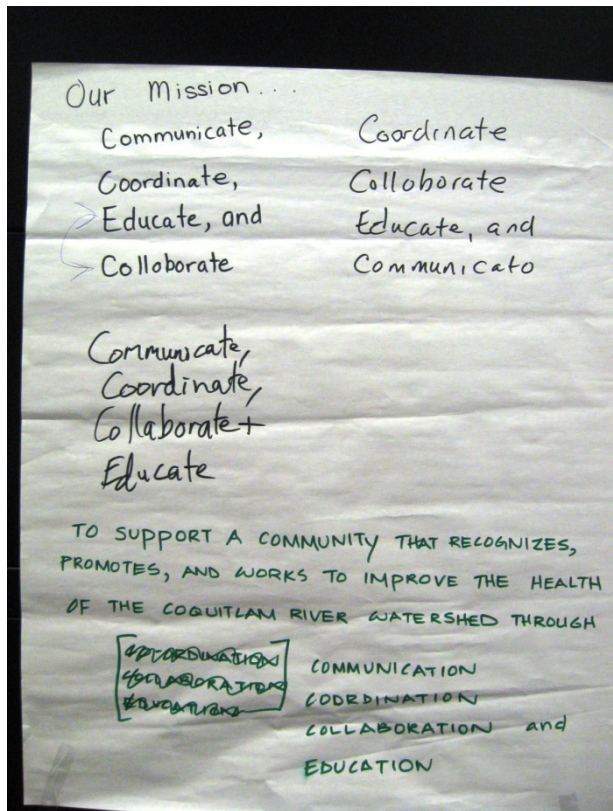 Our Mission...
Communicate,
Coordinate,
Educate, and
Colloborate
Coordinate
Colloborate
Educate, and
Communicato
Communicate,
Coordinate,
Collaborate +
Educate
TO SUPPORT A COMMUNITY THAT RECOGNIZES,
PROMOTES, AND WORKS TO IMPROVE THE HEALTH
OF THE COQUITLAM RIVER WATERSHED THROUGH
COORDINATION
COLLABORATION
EDUCATION
COMMUNICATION
COORDINATION
COLLABORATION and
EDUCATION